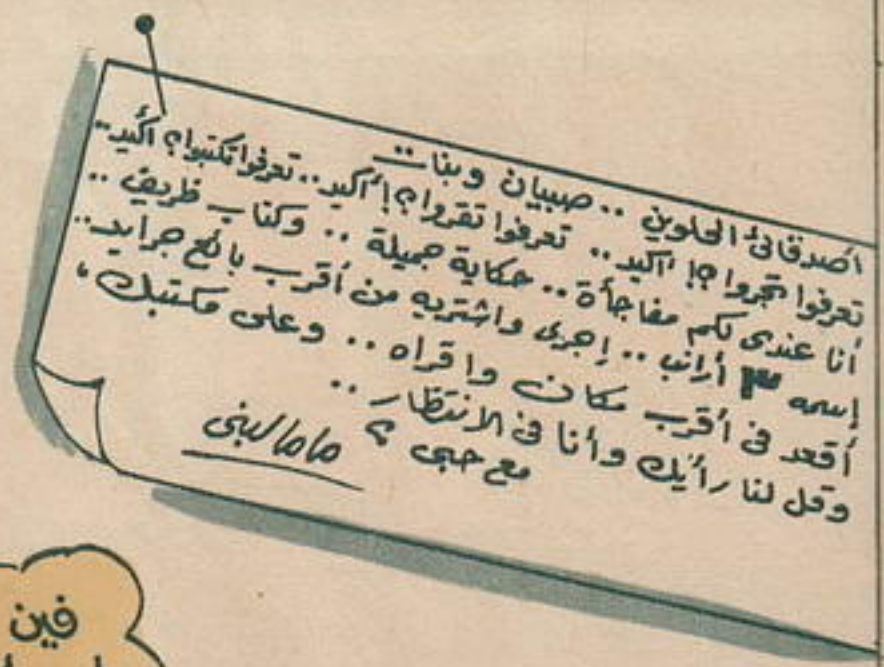 أصدقائى الحلوين .. صبيان وبنات ..
تعرفوا تجروا؟! أكيد .. تعرفوا تقروا؟! أكيد .. تعرفوا تكتبوا؟ أكيد ..
أنا عندى لكم مفاجأة .. حكاية جميلة .. وكتاب ظريف ..
إسمه ٣ أرانب .. إجرى واشتريه من أقرب بائع جرايد ..
أقعد فى أقرب مكان واقراه .. وعلى مكتبك ،
وقل لنا رأيك وأنا فى الانتظار ..
مع حبى
ماما لبنى
فين